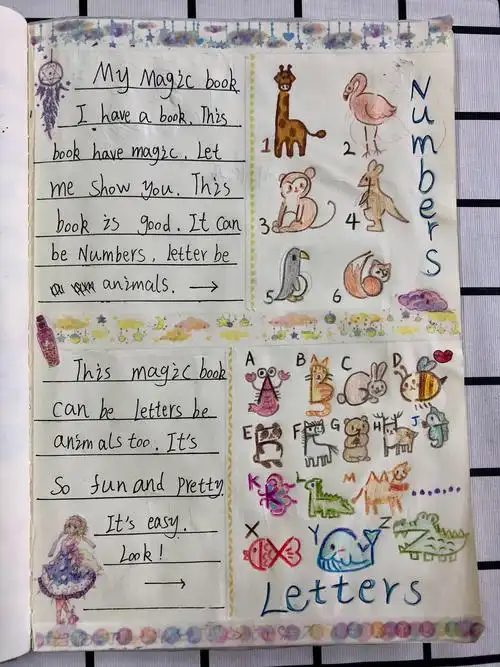 My Magic book
I have a book. This
book have magic. Let
me show you. This
book is good. It can
be Numbers, letter be
animals. →
1
2
3
4
5
6
Numbers
This magic book
can be letters be
animals too. It's
So fun and pretty
It's easy.
Look!
→
A B C D
E F G H J
K L M
X Y Z
Letters